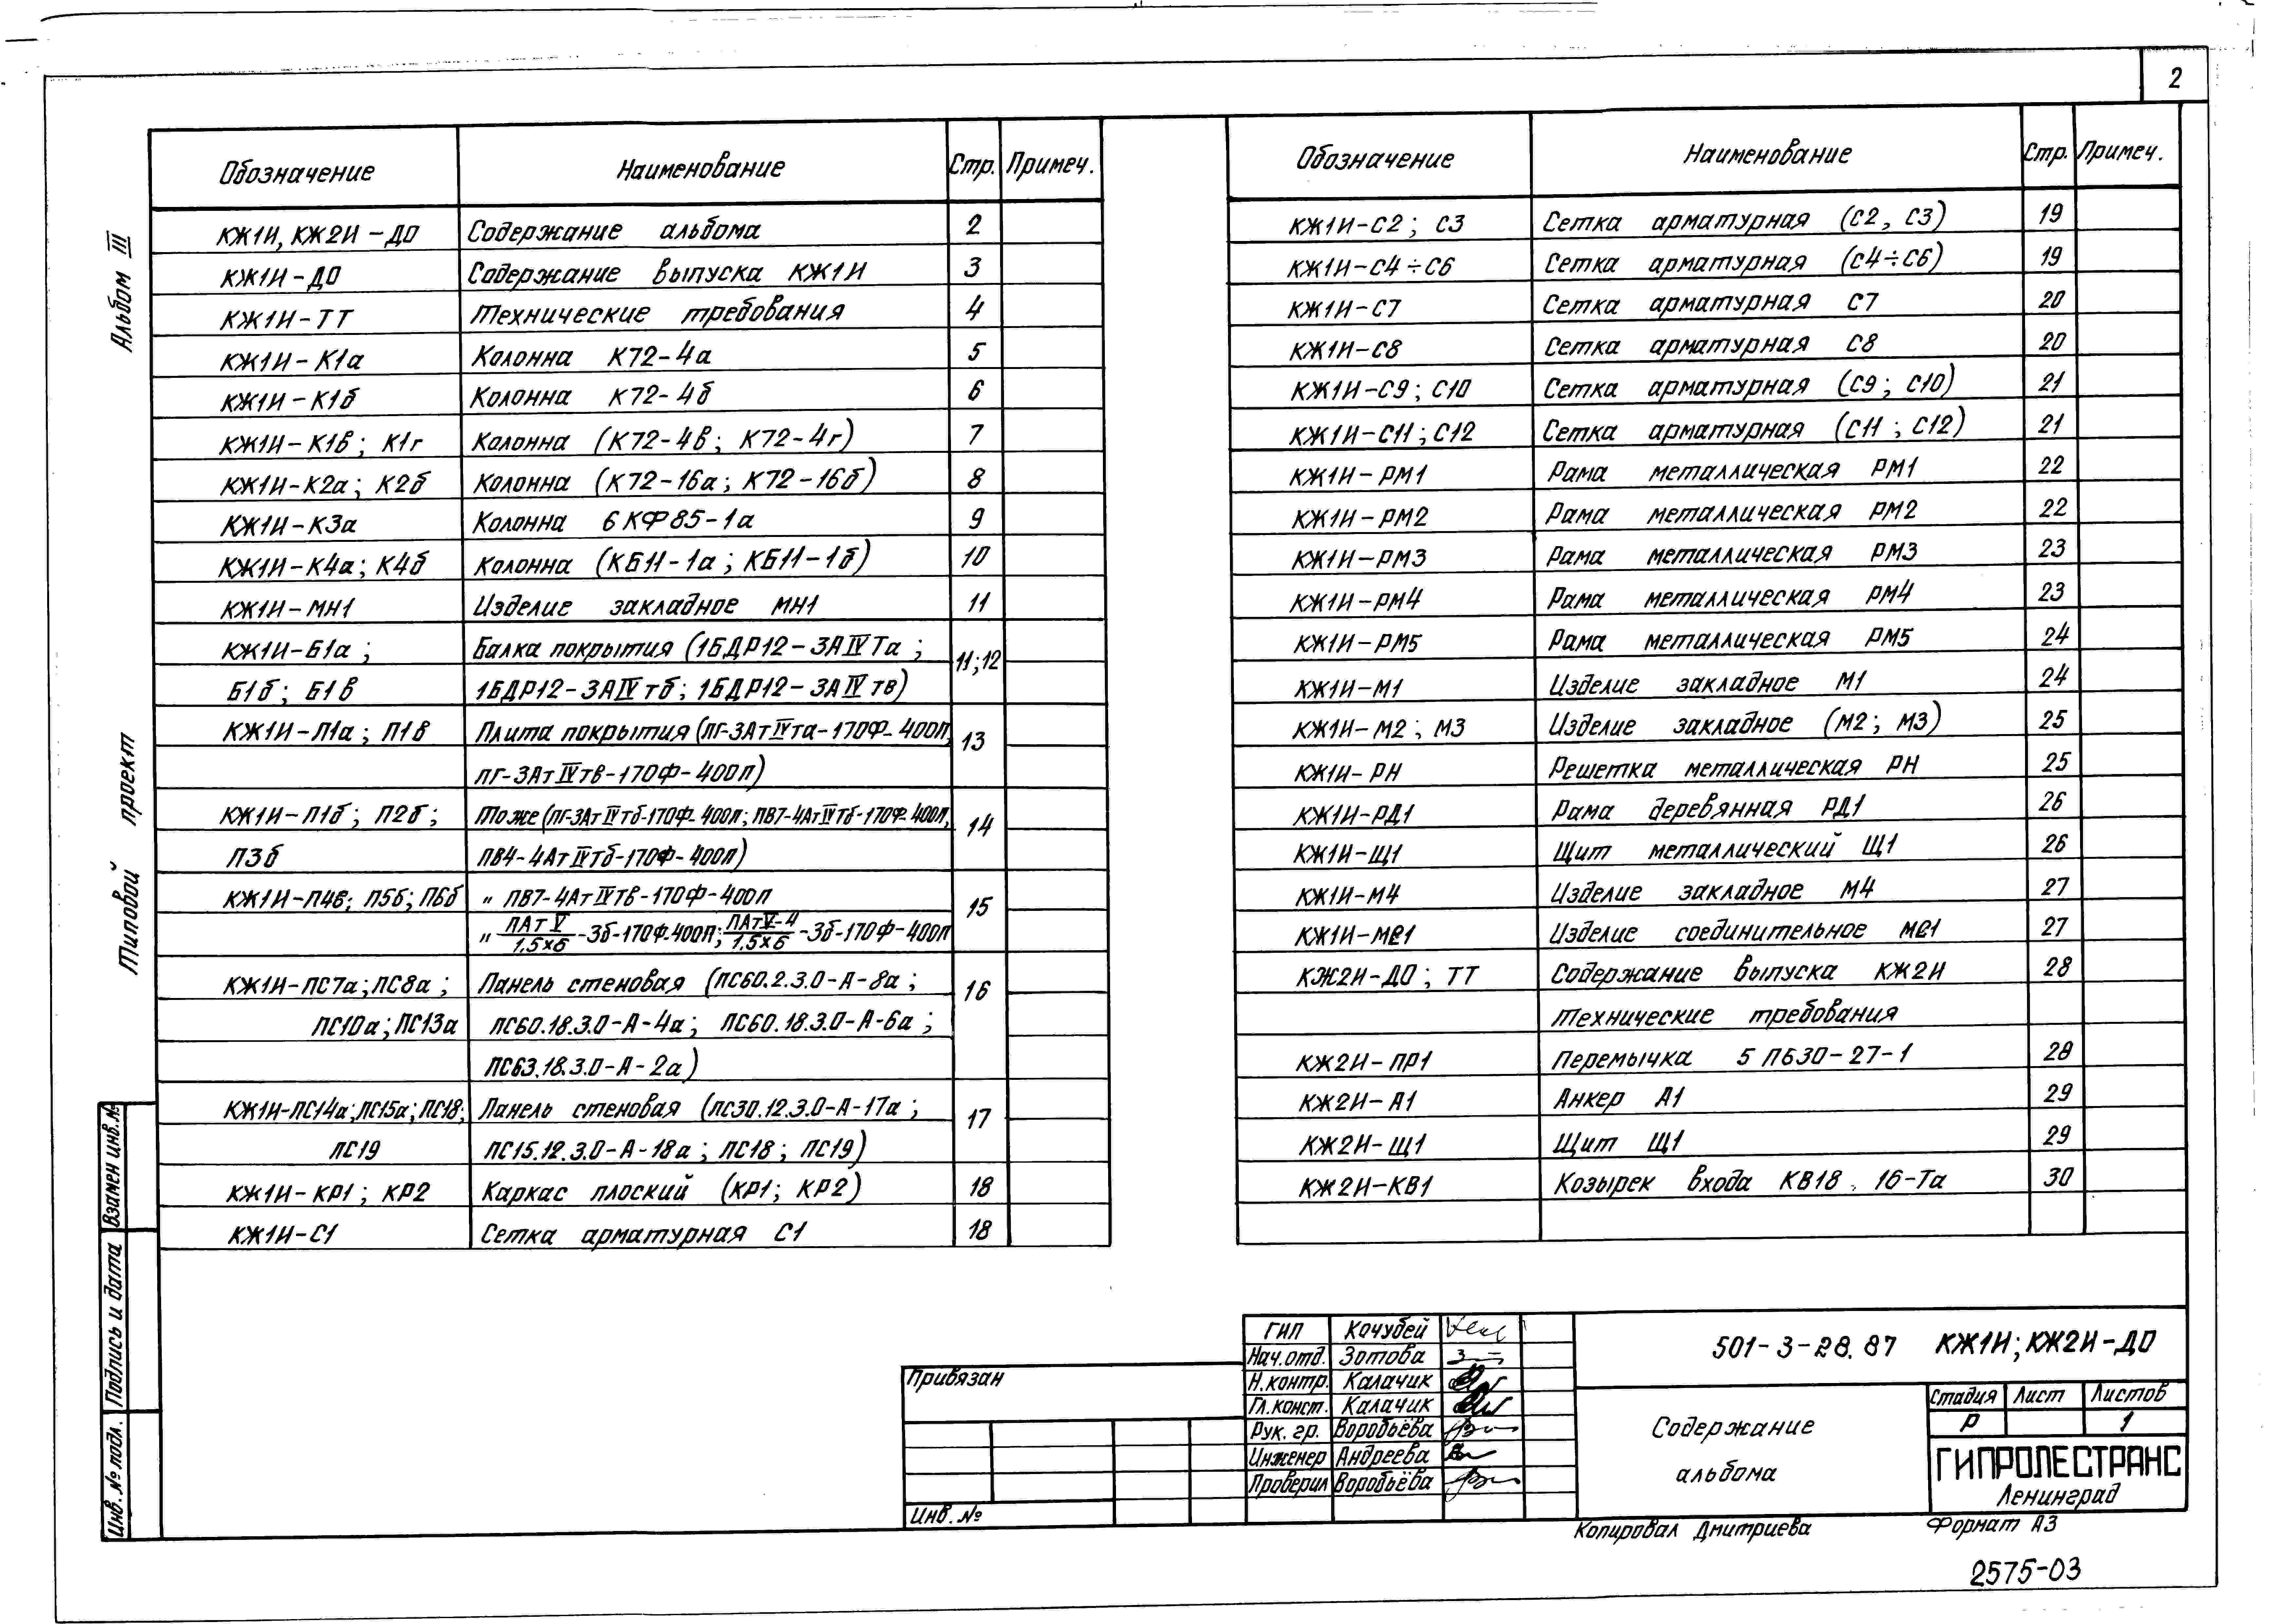 2
Альбом III
Типовой проект
Обозначение Наименование Стр. Примеч.
КЖ1И, КЖ2И-ДО Содержание альбома 2
КЖ1И-ДО Содержание выпуска КЖ1И 3
КЖ1И-ТТ Технические требования 4
КЖ1И-К1а Колонна К72-4а 5
КЖ1И-К1б Колонна К72-4б 6
КЖ1И-К1в; К1г Колонна (К72-4в; К72-4г) 7
КЖ1И-К2а; К2б Колонна (К72-16а; К72-16б) 8
КЖ1И-К3а Колонна 6КФ85-1а 9
КЖ1И-К4а; К4б Колонна (КБ11-1а; КБ11-1б) 10
КЖ1И-МН1 Изделие закладное МН1 11
КЖ1И-Б1а; Балка покрытия (1БДР12-3АIVТа; 11;12
Б1б; Б1в 1БДР12-3АIVтб; 1БДР12-3АIVтв)
КЖ1И-П1а; П1в Плита покрытия (ПГ-3АтIVта-170Ф-400П, 13
ПГ-3АтIVтв-170Ф-400П)
КЖ1И-П1б; П2б; То же (ПГ-3АтIVтб-170Ф-400П; ПВ7-4АтIVтб-170Ф-400П, 14
П3б ПВ4-4АтIVтб-170Ф-400П)
КЖ1И-П4в; П5б; П6б „ ПВ7-4АтIVТв-170Ф-400П 15
„ ПАтV/1,5х6-3б-170Ф-400П; ПАтV-4/1,5х6-3б-170Ф-400П
КЖ1И-ПС7а; ПС8а; Панель стеновая (ПС60.2.3.0-А-8а; 16
ПС10а; ПС13а ПС60.18.3.0-А-4а; ПС60.18.3.0-А-6а;
ПС63.18.3.0-А-2а)
КЖ1И-ПС14а; ПС15а; ПС18; Панель стеновая (ПС30.12.3.0-А-17а; 17
ПС19 ПС15.12.3.0-А-18а; ПС18; ПС19)
КЖ1И-КР1; КР2 Каркас плоский (КР1; КР2) 18
КЖ1И-С1 Сетка арматурная С1 18
Обозначение Наименование Стр. Примеч.
КЖ1И-С2; С3 Сетка арматурная (С2, С3) 19
КЖ1И-С4÷С6 Сетка арматурная (С4÷С6) 19
КЖ1И-С7 Сетка арматурная С7 20
КЖ1И-С8 Сетка арматурная С8 20
КЖ1И-С9; С10 Сетка арматурная (С9; С10) 21
КЖ1И-С11; С12 Сетка арматурная (С11; С12) 21
КЖ1И-РМ1 Рама металлическая РМ1 22
КЖ1И-РМ2 Рама металлическая РМ2 22
КЖ1И-РМ3 Рама металлическая РМ3 23
КЖ1И-РМ4 Рама металлическая РМ4 23
КЖ1И-РМ5 Рама металлическая РМ5 24
КЖ1И-М1 Изделие закладное М1 24
КЖ1И-М2; М3 Изделие закладное (М2; М3) 25
КЖ1И-РН Решетка металлическая РН 25
КЖ1И-РД1 Рама деревянная РД1 26
КЖ1И-Щ1 Щит металлический Щ1 26
КЖ1И-М4 Изделие закладное М4 27
КЖ1И-МС1 Изделие соединительное МС1 27
КЖ2И-ДО; ТТ Содержание выпуска КЖ2И 28
Технические требования
КЖ2И-ПР1 Перемычка 5ПБ30-27-1 28
КЖ2И-А1 Анкер А1 29
КЖ2И-Щ1 Щит Щ1 29
КЖ2И-КВ1 Козырек входа КВ18.16-Та 30
Взамен инв.№
Подпись и дата
Инв. № подл.
Привязан
Инв. №
ГИП Кочубей
Нач.отд. Зотова
Н.контр. Калачик
Гл.конст. Калачик
Рук. гр. Воробьёва
Инженер Андреева
Проверил Воробьёва
501-3-28.87 КЖ1И; КЖ2И-ДО
Содержание
альбома
Стадия Лист Листов
Р 1
ГИПРОЛЕСТРАНС
Ленинград
Копировал Дмитриева Формат А3
2575-03